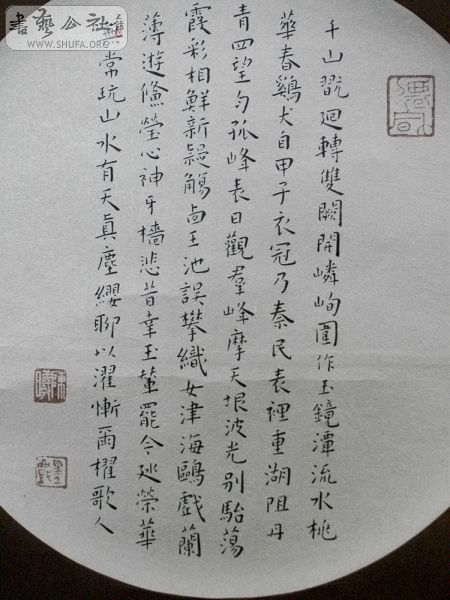 千山戢迴轉雙闕開嶙峋圍作玉鏡潭流水桃
華春鷄犬自甲子衣冠乃秦民表裡重湖阻丹
青四望勻孤峰表日觀羣峰摩天垠波光別駘蕩
霞彩相鮮新疑觴卥王池誤攀織女津海鷗戲蘭
薄遊儵瑩心神牙檣悲昔幸玉輦罷今廵榮華
常玩山水有天真塵纓聊以濯慚爾櫂歌人
書藝公社
WWW.SHUFA.ORG